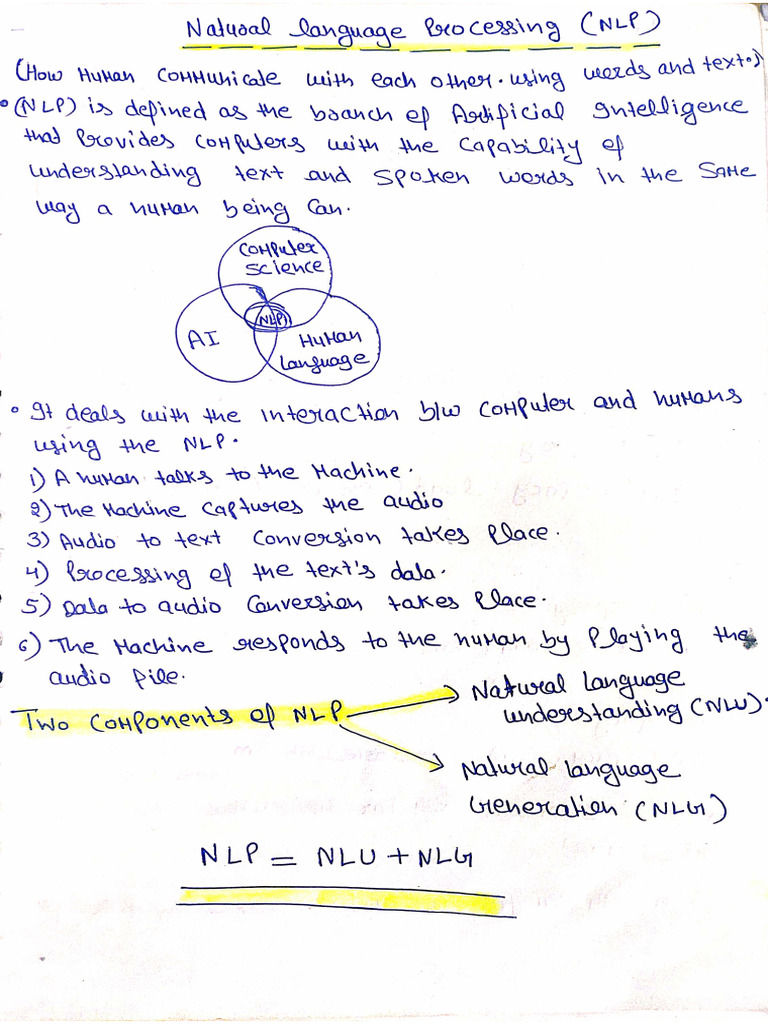 Natural Language Processing (NLP)
(How Human Communicate with each other. using words and text.)
• (NLP) is defined as the branch of Artificial Intelligence
that Provides Computers with the Capability of
understanding text and spoken words in the same
way a human being Can.
Computer
Science
NLP
AI
Human
Language
• It deals with the interaction b/w Computer and humans
using the NLP.
1) A human talks to the Machine.
2) The Machine Captures the audio
3) Audio to text Conversion takes Place.
4) Processing of the text's data.
5) Data to audio Conversion takes Place.
6) The Machine responds to the human by Playing the
audio file.
Two Components of NLP
Natural Language
understanding (NLU).
Natural language
Generation (NLG)
NLP = NLU + NLG